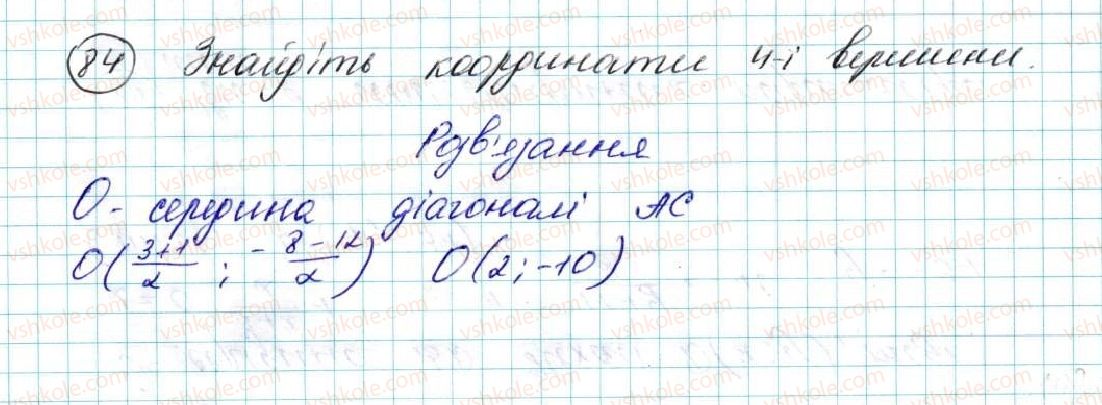 84 Знайдіть координати 4-ї вершини.
Розв'язання
О - середина діагоналі АС
О(3+1/2 ; -8-12/2) О(2;-10)